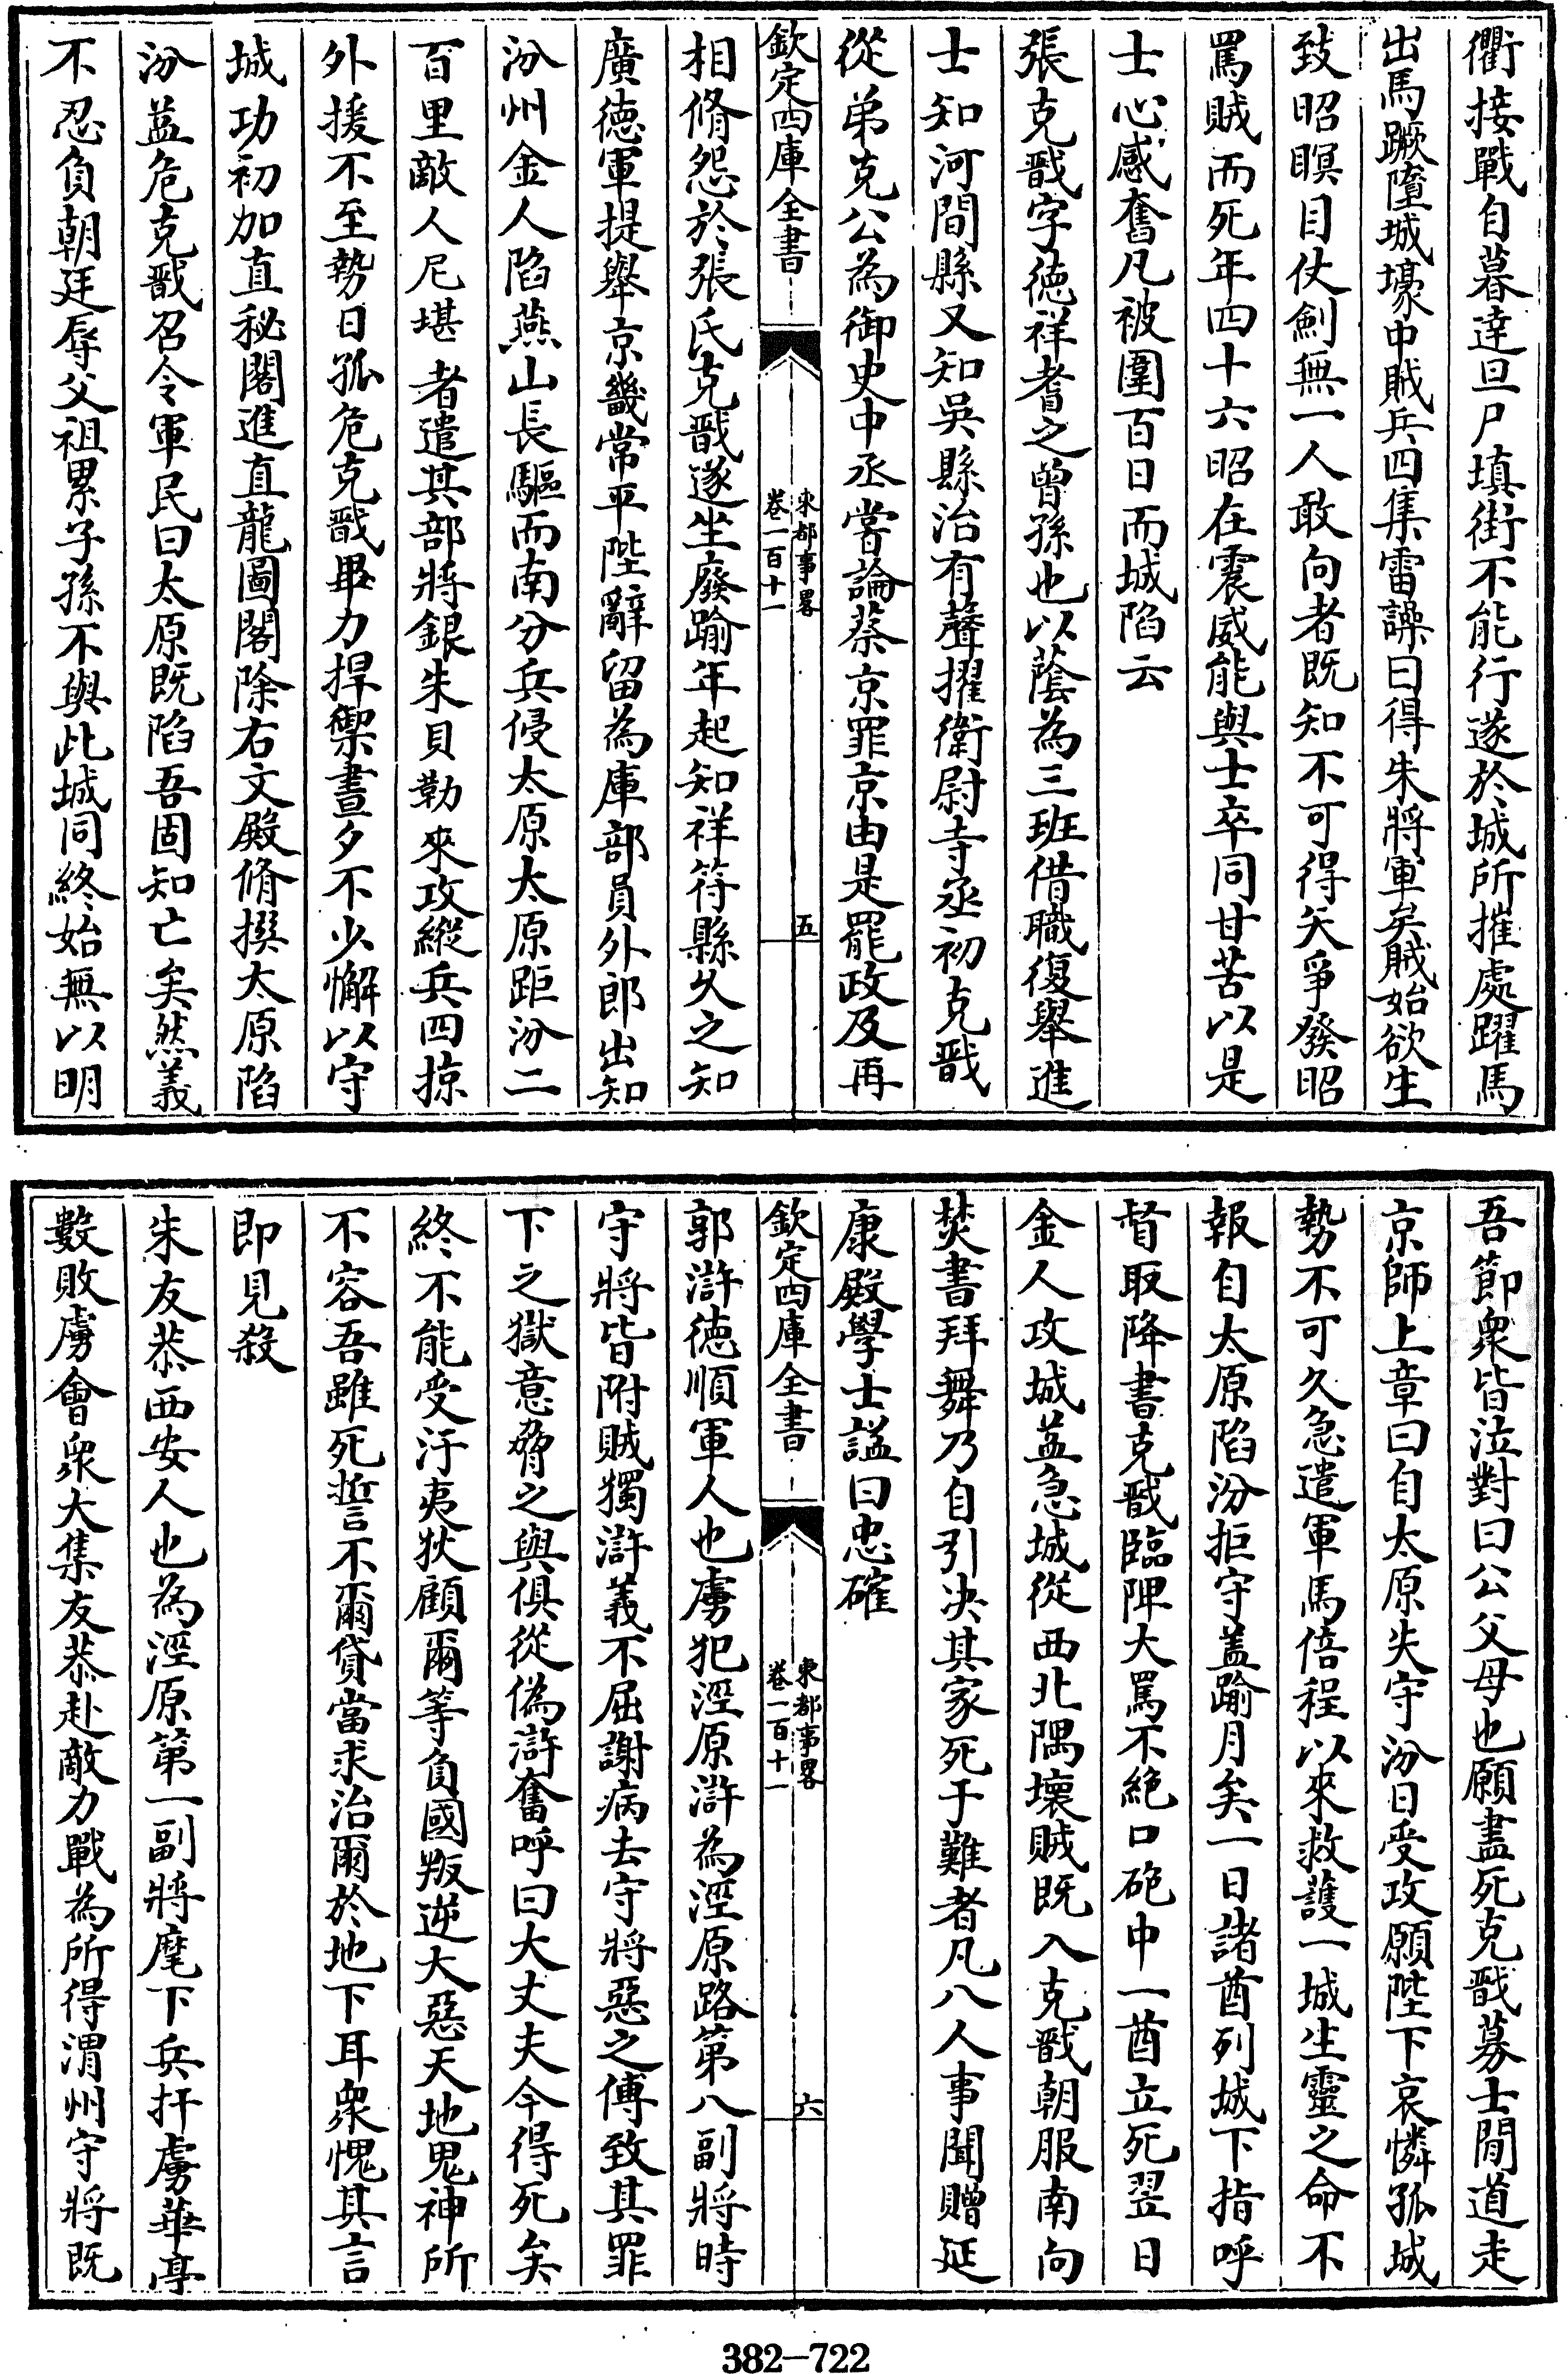 衢接戰自暮達旦尸填街不能行遂於城所摧處躍馬
出馬蹶墮城壕中賊兵四集雷譟曰得朱將軍矣賊始欲生
致昭瞑目仗劍無一人敢向者既知不可得矢爭發昭
罵賊而死年四十六昭在震威能與士卒同甘苦以是
士心感奮凡被圍百日而城陷云
張克戩字徳祥耆之曾孫也以蔭為三班借職復舉進
士知河間縣又知吳縣治有聲擢衛尉寺丞初克戩
從弟克公為御史中丞嘗論蔡京罪京由是罷政及再
欽定四庫全書
東都事畧
卷一百十一
五
相脩怨於張氏克戩遂坐廢踰年起知祥符縣久之知
廣徳軍提舉京畿常平陛辭留為庫部員外郎出知
汾州金人陷燕山長驅而南分兵侵太原太原距汾二
百里敵人尼堪者遣其部將銀朱貝勒來攻縱兵四掠
外援不至勢日孤危克戩畢力捍禦晝夕不少懈以守
城功初加直秘閣進直龍圖閣除右文殿脩撰太原陷
汾益危克戩召令軍民曰太原既陷吾固知亡矣然義
不忍負朝廷辱父祖累子孫不與此城同終始無以明
吾節衆皆泣對曰公父母也願盡死克戩募士間道走
京師上章曰自太原失守汾日受攻願陛下哀憐孤城
勢不可久急遣軍馬倍程以來救護一城生靈之命不
報自太原陷汾拒守盖踰月矣一日諸酋列城下指呼
督取降書克戩臨陴大罵不絶口砲中一酋立死翌日
金人攻城益急城從西北隅壞賊既入克戩朝服南向
焚書拜舞乃自引决其家死于難者凡八人事聞贈延
康殿學士諡曰忠確
欽定四庫全書
東都事畧
卷一百十一
六
郭滸徳順軍人也虜犯涇原滸為涇原路第八副將時
守將皆附賊獨滸義不屈謝病去守將惡之傅致其罪
下之獄意脅之與俱從偽滸奮呼曰大丈夫今得死矣
終不能受汙夷狄顧爾等負國叛逆大惡天地鬼神所
不容吾雖死誓不爾貸當求治爾於地下耳衆愧其言
即見殺
朱友恭西安人也為涇原第一副將麾下兵扞虜華亭
數敗虜會衆大集友恭赴敵力戰為所得渭州守將既
382-722